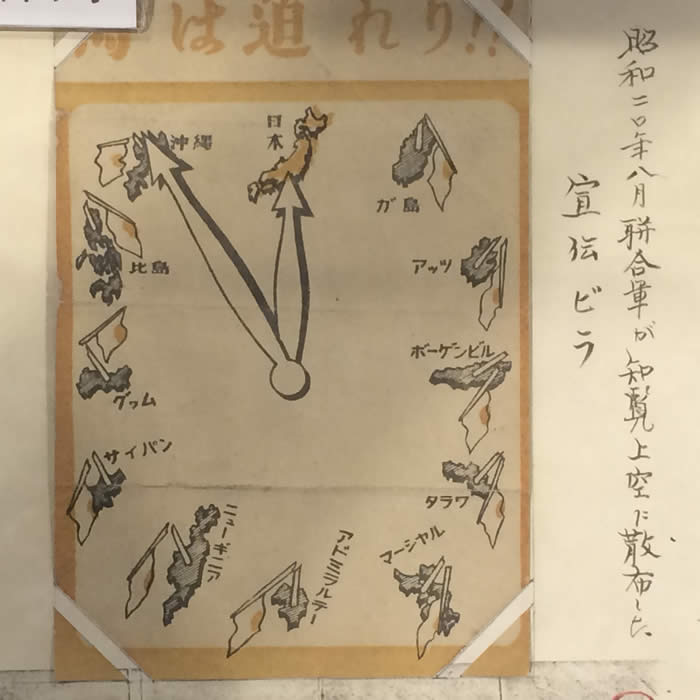 は迫れり!!
日本
沖縄
ガ島
比島
アッツ
ボーゲンビル
グァム
サイパン
タラワ
ニューギニア
アドミラルテー
マーシャル
昭和二〇年八月聯合軍が知覧上空に散布した
宣伝ビラ